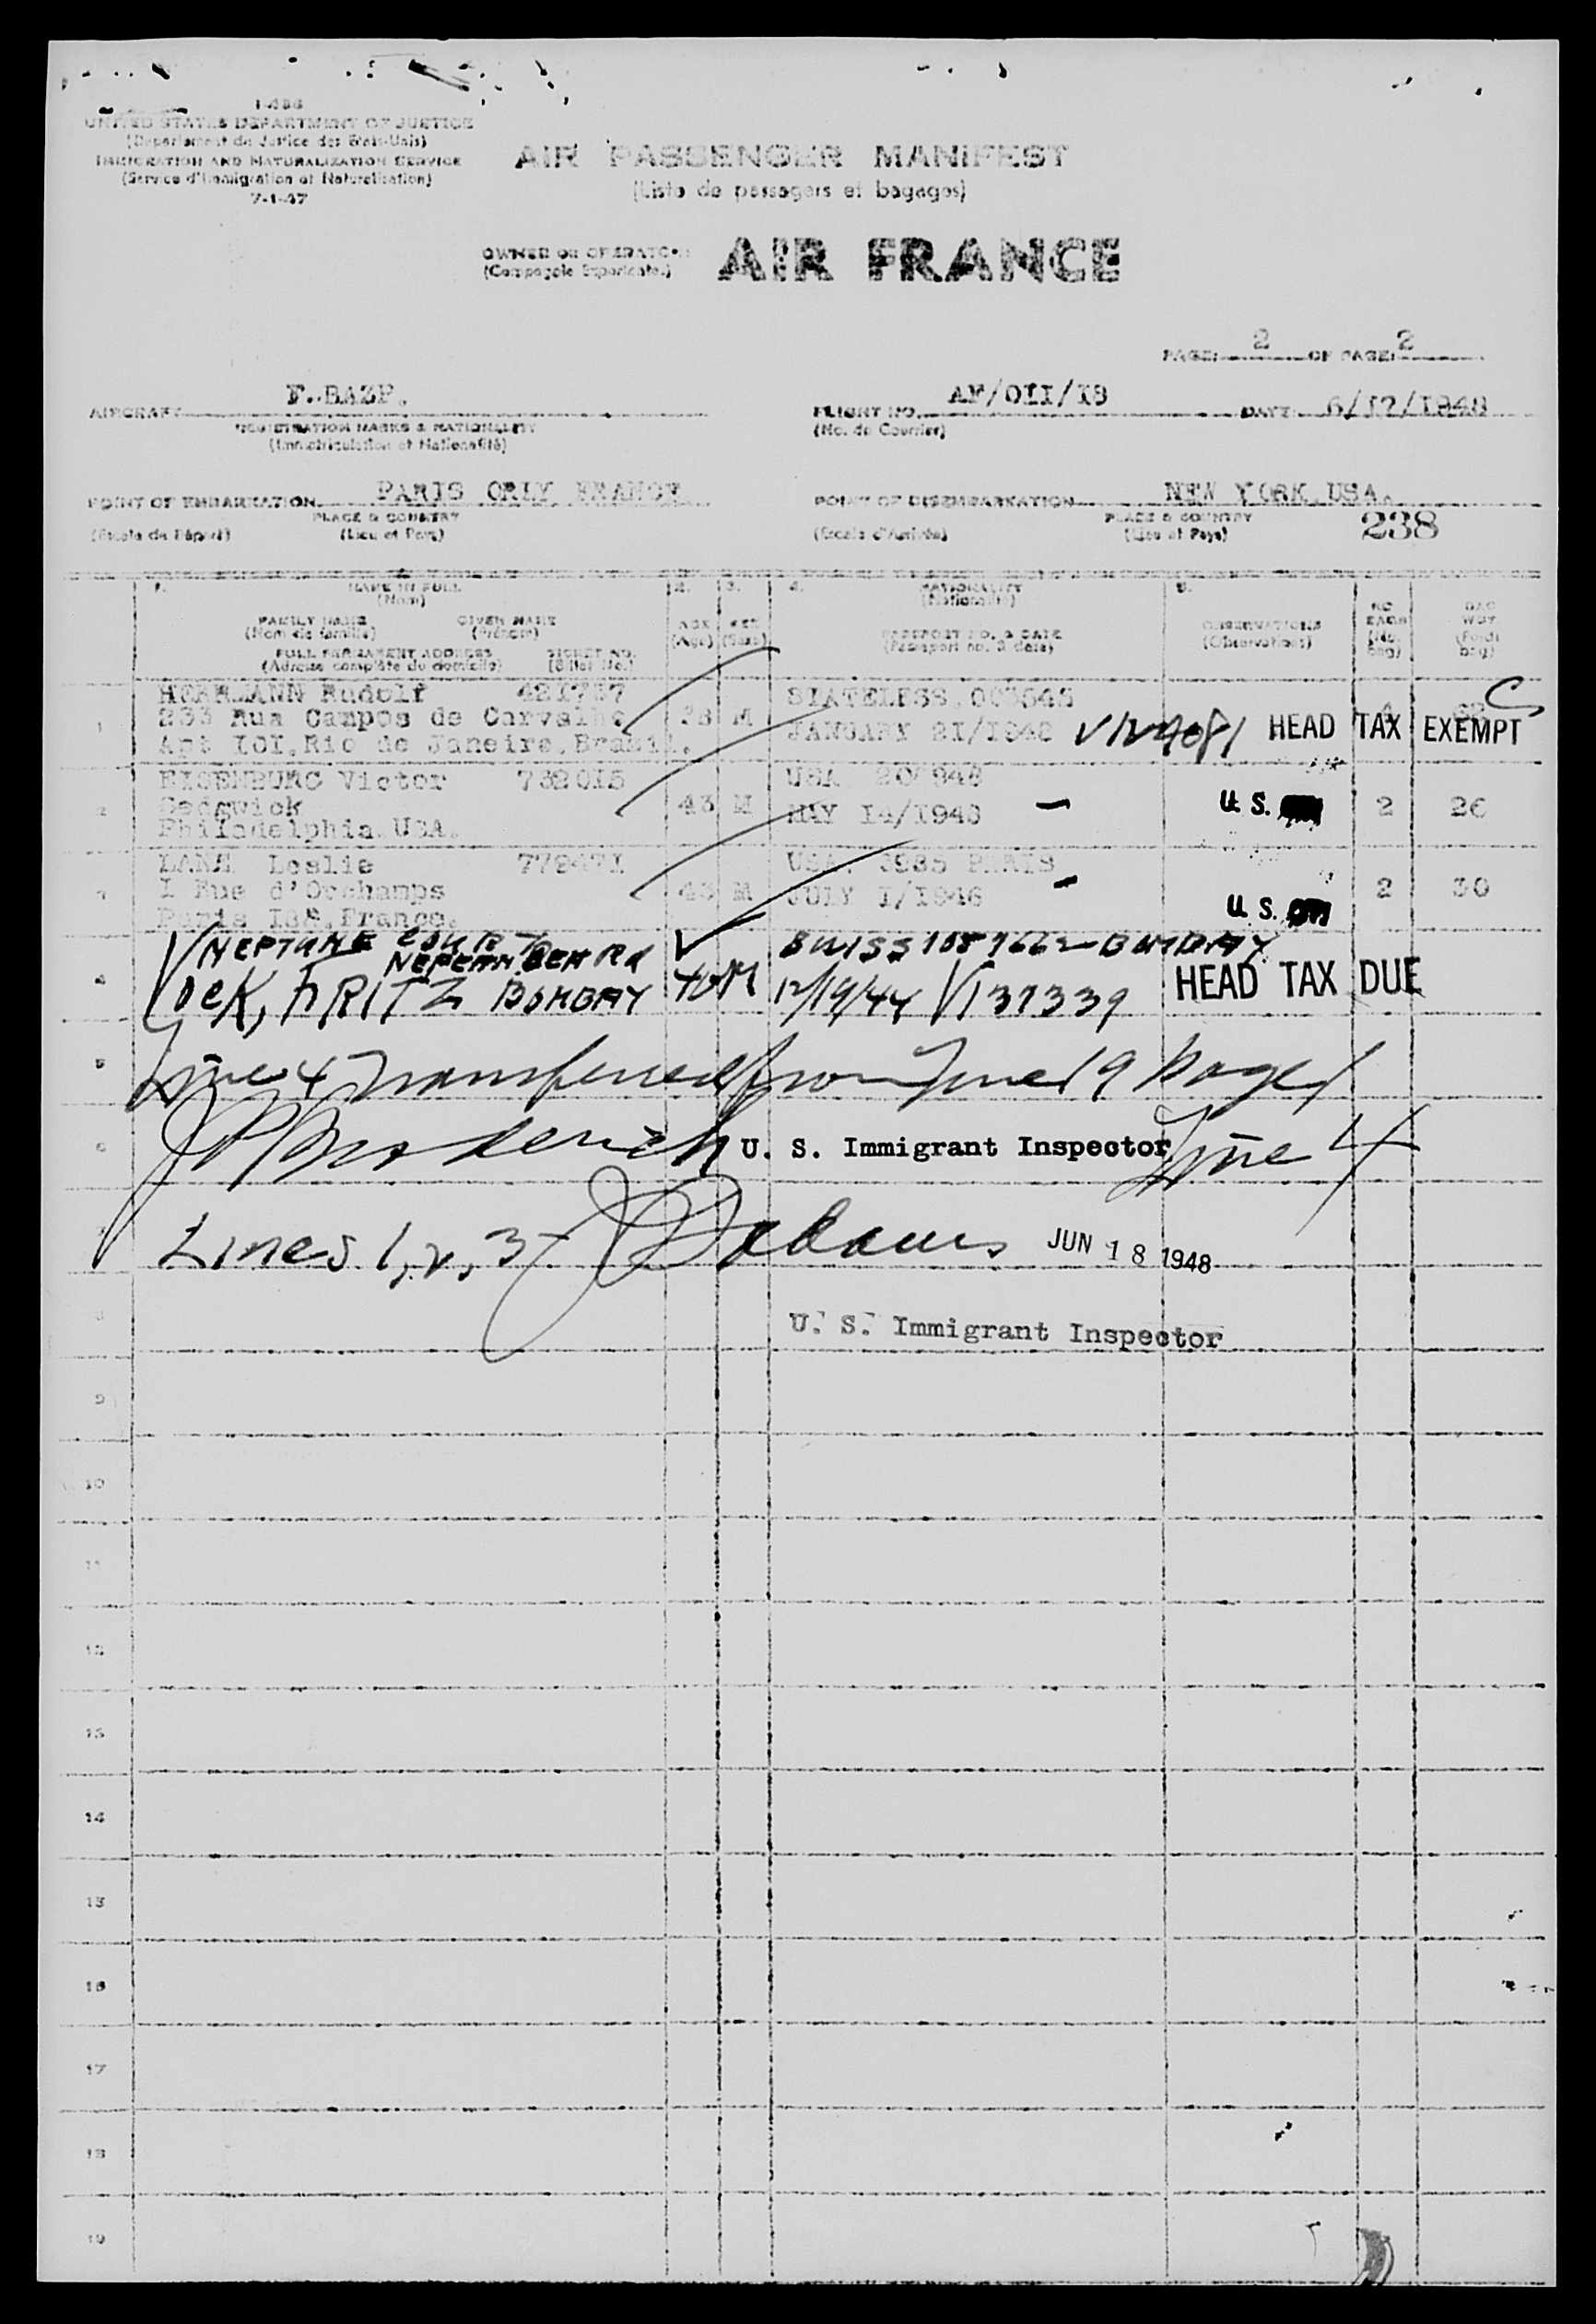 I-466
UNITED STATES DEPARTMENT OF JUSTICE
(Département de Justice des Etats-Unis)
IMMIGRATION AND NATURALIZATION SERVICE
(Service d'Immigration et Naturalisation)
7-1-47
AIR PASSENGER MANIFEST
(Liste de passagers et bagages)
OWNER OR OPERATOR
(Compagnie Exploitante)
AIR FRANCE
PAGE: 2 OF PAGE: 2
AIRCRAFT F.BAZP.
REGISTRATION MARKS & NATIONALITY
(Immatriculation et Nationalité)
FLIGHT NO. AF/OII/I8 DATE: 6/I7/I948
(No. de Courrier)
POINT OF EMBARKATION PARIS ORLY FRANCE
PLACE & COUNTRY
(Escale de Départ) (Lieu et Pays)
POINT OF DISEMBARKATION NEW YORK USA.
PLACE & COUNTRY
(Escale d'Arrivée) (Lieu et Pays)
238
1. NAME IN FULL
(Nom)
FAMILY NAME GIVEN NAME
(Nom de famille) (Prénom)
FULL PERMANENT ADDRESS TICKET NO.
(Adresse complète du domicile) (Billet No.)
2. AGE
(Age)
3. SEX
(Sexe)
4. NATIONALITY
(Nationalité)
PASSPORT NO. & DATE
(Passeport no. & date)
5. OBSERVATIONS
(Observations)
NO. BAGS
(No. bag)
BAG WGT
(Poids bag)
1 HERRMANN Rudolf 421737
233 Rua Campos de Carvalho
Apt IOI,Rio de Janeiro,Brazil.
M
STATELESS.
JANUARY 2I/I948
HEAD TAX EXEMPT
2 EISENBURG Victor 732015
Sedgwick
Philadelphia USA.
43 M
USA
MAY I4/I948 -
U.S.
2 26
3 LANE Leslie 779471
I Rue d'Orchamps
Paris I8e,France.
43 M
USA. 3985 PARIS
JULY I/I946 -
U.S.
2 30
4 NEPTUNE COURT
NEPEAN SEA Rd
FRITZ BOMBAY
40 M
SWISS 1087662 BOMBAY
12/19/44 VI 37339
HEAD TAX DUE
5 Line 4 Transferred from Line 19 page 1
6 U. S. Immigrant Inspector Line 4
7 Lines 1, 2, 3 JUN 18 1948
8 U. S. Immigrant Inspector
9
10
11
12
13
14
15
16
17
18
19